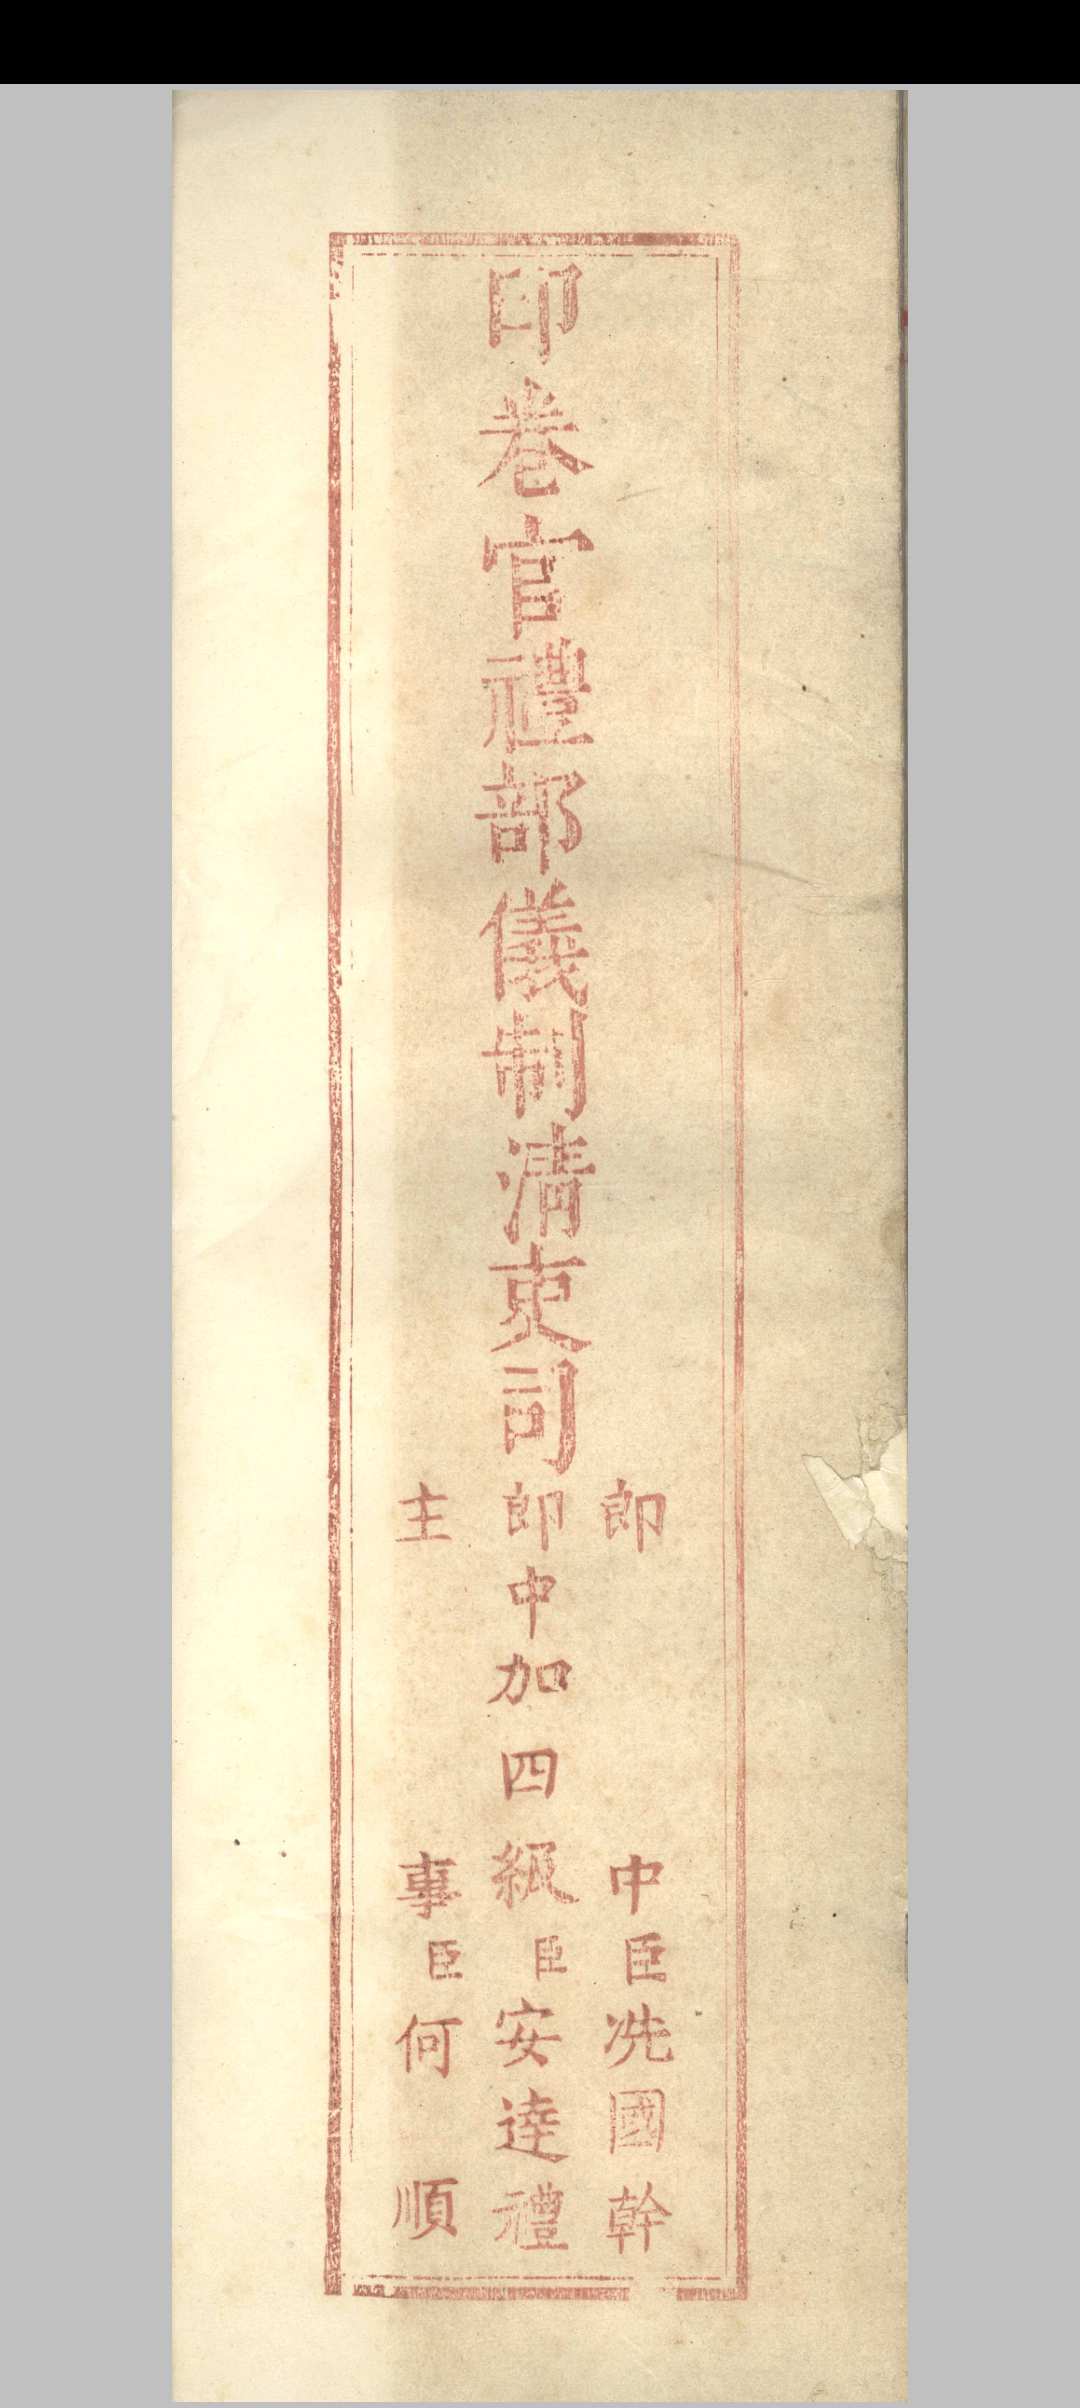 印卷官禮部儀制清吏司
郎中臣冼國幹
郎中加四級臣安達禮
主事臣何順